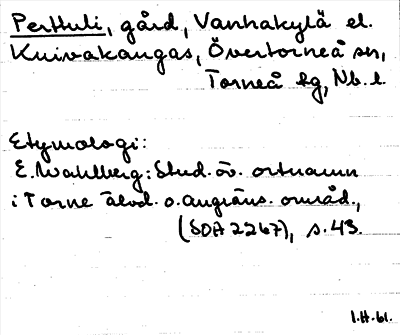 Perttuli, gård, Vanhakylä el.
Kuivakangas, Övertorneå sn,
Torneå tg, Nb. l.
Etymologi:
E. Wahlberg: Stud. öv. ortnamn
i Torne älvd. o. angräns. områd.,
(SOA 2267), s. 43.
1.H.61.